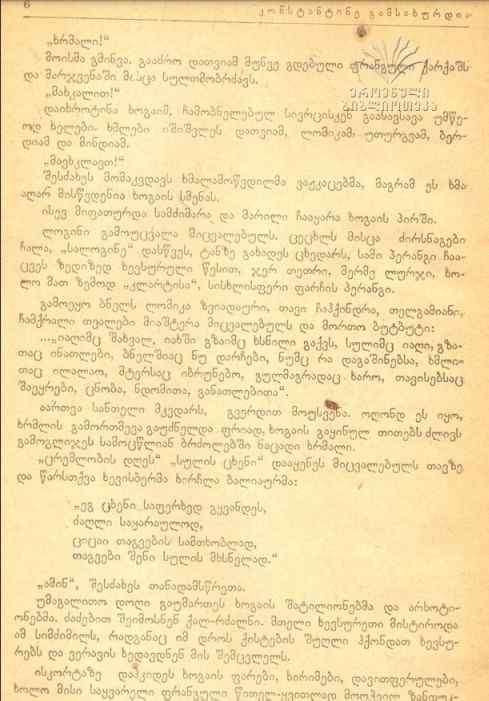 6
კონსტანტინე გამსახურდია
„ხრმალი!“
მოისმა გმინვა. გააძრო დათვიამ მუნვე გდებული ფრანგული ქარქაშს
და მარჯვენაში მისცა სულთმობრძავს.
ეროვნული
ბიბლიოთეკა
„მახკალით!“
დაიხროტინა ხოგაიმ, ჩამობნელებულ სივრცისკენ გაასავსავა უმწე-
ოდ ხელები. ხმლები იშიშვლეს დათვიამ, ლომიკამ, უთურგვამ, ბერ-
დიამ და მინდიამ.
„მაეხკლავთ!“
შესძახეს მომაკვდავს ხმალამოწვდილმა ვაჟკაცებმა, მაგრამ ეს ხმა
აღარ მისწვდენია ხოგაის სმენას.
ისევ მიფათურდა სამძიმარა და მარილი ჩააყარა ხოგაის პირში.
ლოგინი გამოუცვალა მიცვალებულს. ცეცხლს მისცა ძირსნაგები
ჩალა, „სალოგინე“ დასწვეს, ტანზე გახადეს ცხედარს, სამი პერანგი ჩაა-
ცვეს ზედიზედ ხევსურული წესით, ჯერ თეთრი, მერმე ლურჯი, ხო-
ლო მათ ზემოდ „კლარტისა“, სისხლისფერი ფარჩის პერანგი.
გამოეყო ბნელს ლომიკა ზვიადაური, თავი ჩაჰქინდრა, თელგამიანი,
ჩამქრალი თვალები მიაშტერა მიცვალებულს და მორთო ბუტბუტი:
...„იაღიმც შახვალ, იახში გზაიმც ხსნილი გაქვს, სულიმც იაღი, გზა-
თაც ინათლები, ბნელშიაც ნუ დარჩები, ნუმც რა დაგაშინებსა, ხმლი-
თაც ილალაო, მტერსაც იბრუნებო, გულმაგრადაც ხარო, თავისებსაც
შაეყრები, ცნობა, ნდომითა, განათლებითა“.
აართვა სანთელი მკვდარს, გვერდით მოუსვენა. ოღონდ ეს იყო,
ხრმლის გამორთმევა გაუძნელდა ფრიად, ხოგაის გაყინულ თითებს ძლივს
გამოგლიჯეს სამოცწლიან ბრძოლებში ნაცადი ხრმალი.
„ცრემლობის დღეს“ „სულის ცხენი“ დააყენეს მიცვალებულს თავზე
და წარსთქვა ხევისბერმა ხირჩლა ბალიაურმა:
„ეგ ცხენი საფერხედ გყვანდეს,
ძაღლი საყარაულოდ,
ციცაი თაგვების სამთხობლად,
თაგვები შენი სულის მხსნელად.“
„ამინ“, შესძახეს თანადამსწრეთა.
უმაგალითო დოღი გაუმართეს ხოგაის შატილიონებმა და არხოტი-
ონებმა. ძაძებით შეიმოსნენ ქალ-რძალნი. მთელი ხევსურეთი მისტიროდა
ამ სიმძიმილს, რადგანაც იმ დროს ქისტების შუღლი ჰქონდათ ხევსუ-
რებს და ვერავის ხედავდნენ მის შემცვლელს.
ისკორტაზე დაჰკიდეს ხოგაის ფარები, ხირიმები, დავითფერულები,
ხოლო მისი საყვარელი ფრანგული წითელ-ყვითლად